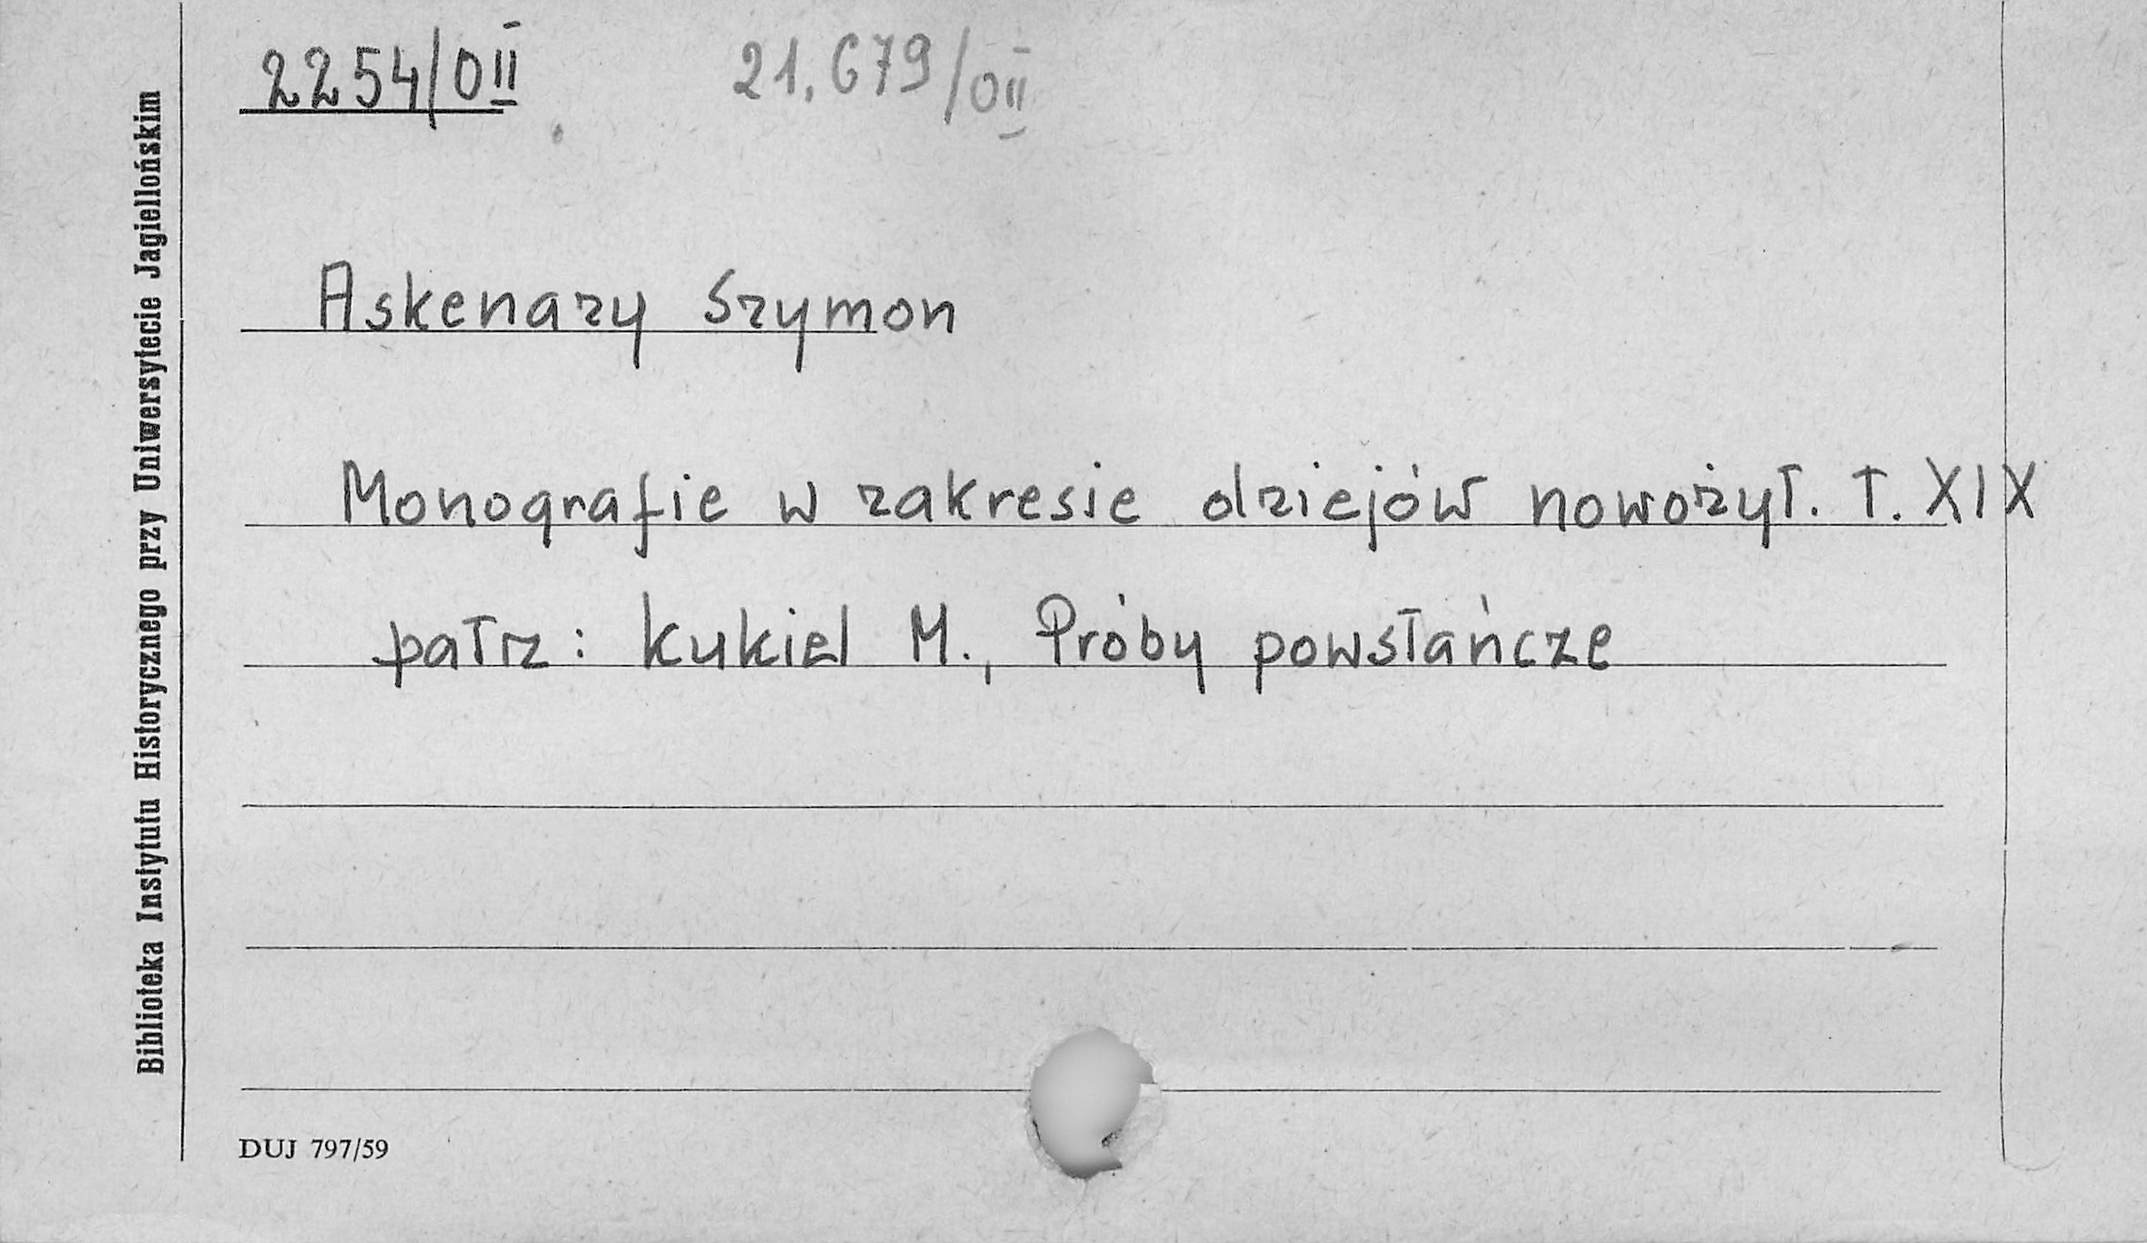 2254/0II 21.679/0II
Askenazy Szymon
Monografie w zakresie dziejów nowożyt. T. XIX
patrz: Kukiel M., Próby powstańcze
Biblioteka Instytutu Historycznego przy Uniwersytecie Jagiellońskim
DUJ 797/59